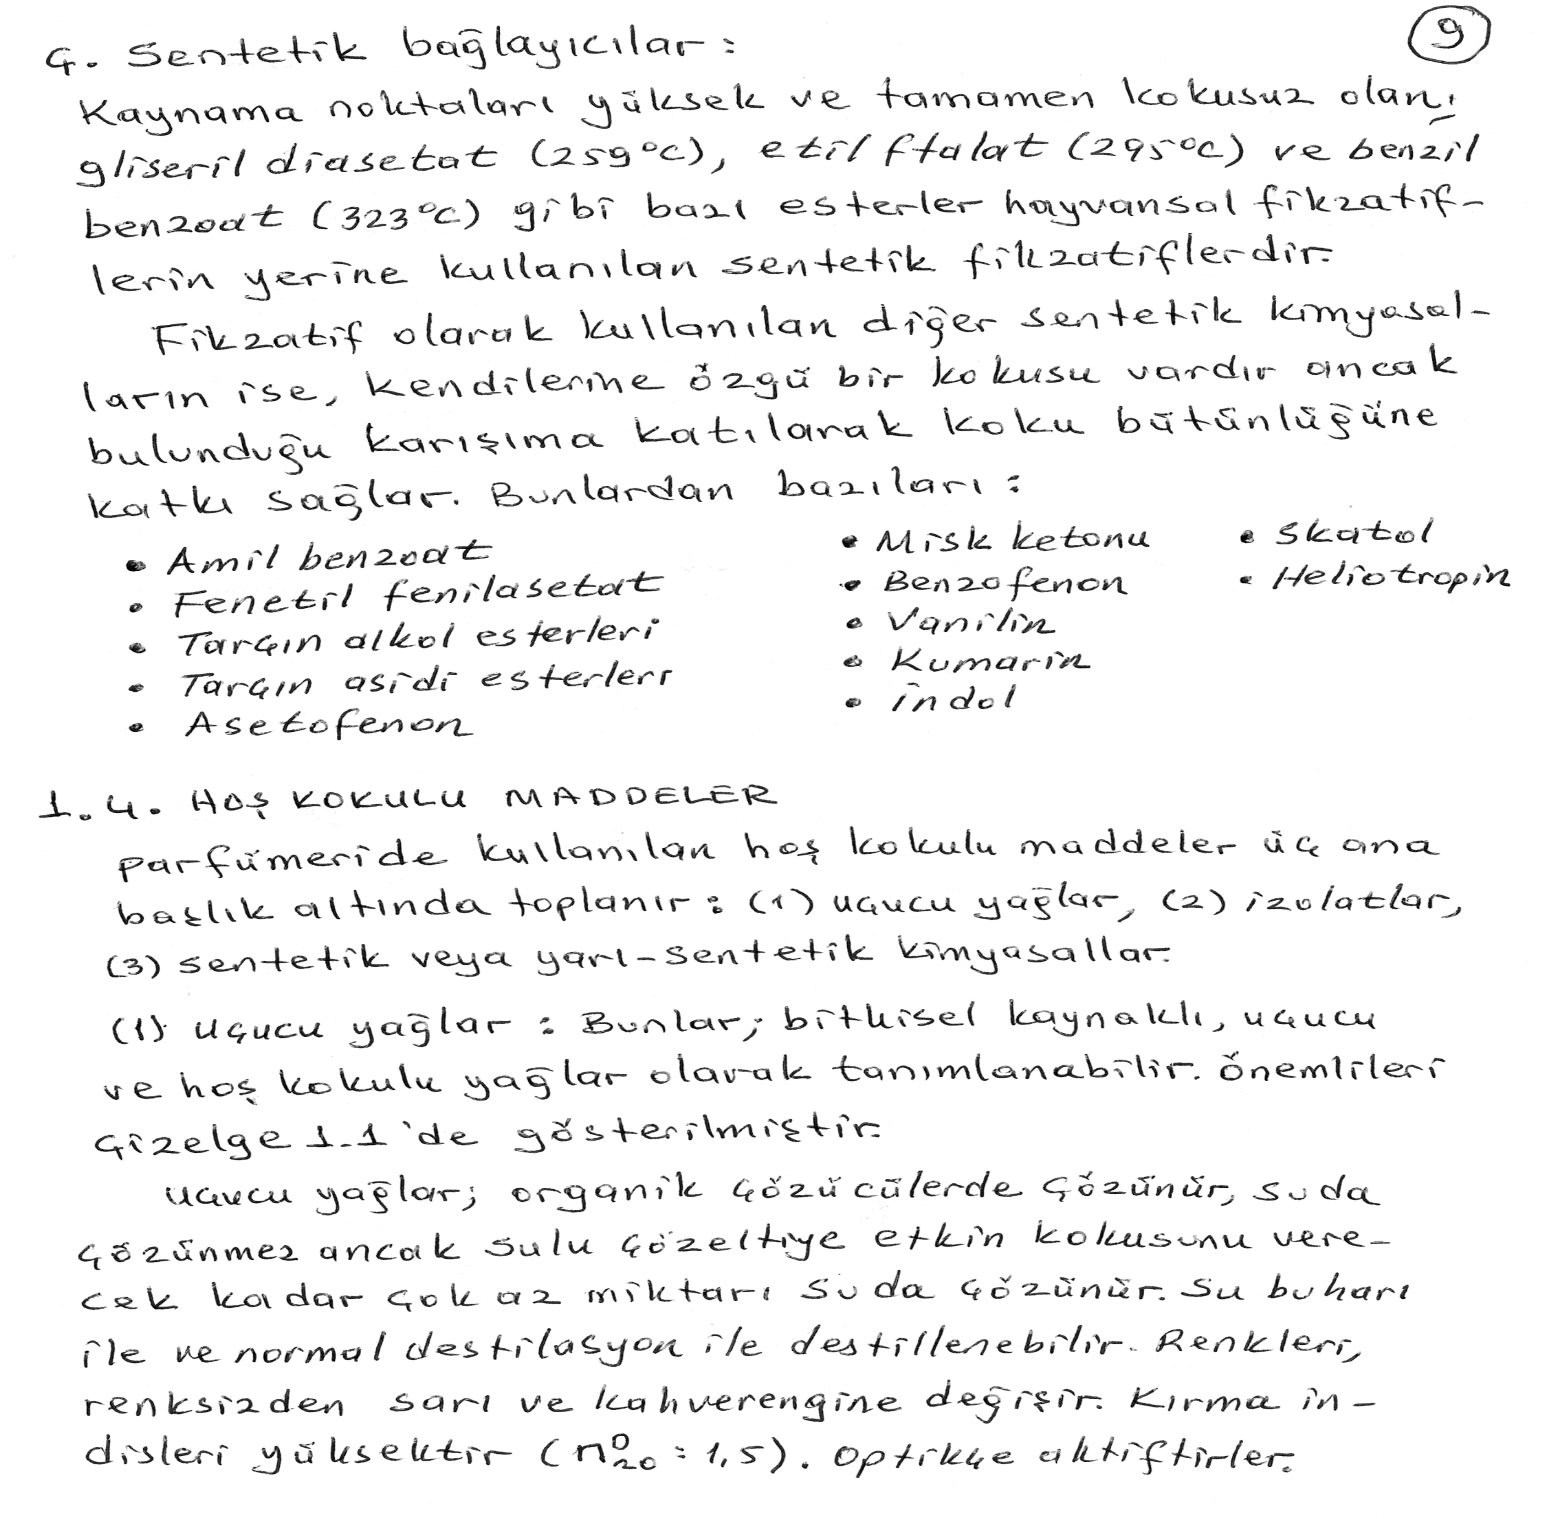 9
Ç. Sentetik bağlayıcılar :
Kaynama noktaları yüksek ve tamamen kokusuz olan;
gliseril diasetat (259°C), etil ftalat (295°C) ve benzil
benzoat (323°C) gibi bazı esterler hayvansal fikzatif-
lerin yerine kullanılan sentetik fikzatiflerdir.
Fikzatif olarak kullanılan diğer sentetik kimyasal-
ların ise, kendilerine özgü bir kokusu vardır ancak
bulunduğu karışıma katılarak koku bütünlüğüne
katkı sağlar. Bunlardan bazıları :
• Amil benzoat
• Fenetil fenilasetat
• Tarçın alkol esterleri
• Tarçın asidi esterleri
• Asetofenon
• Misk ketonu
• Benzofenon
• Vanilin
• Kumarin
• indol
• Skatol
• Heliotropin
1.4. HOŞ KOKULU MADDELER
Parfümeride kullanılan hoş kokulu maddeler üç ana
başlık altında toplanır : (1) uçucu yağlar, (2) izolatlar,
(3) sentetik veya yarı-sentetik kimyasallar.
(1) Uçucu yağlar : Bunlar; bitkisel kaynaklı, uçucu
ve hoş kokulu yağlar olarak tanımlanabilir. Önemlileri
Çizelge 1.1'de gösterilmiştir.
Uçucu yağlar; organik çözücülerde çözünür, suda
çözünmez ancak sulu çözeltiye etkin kokusunu vere-
cek kadar çok az miktarı suda çözünür. Su buharı
ile ve normal destilasyon ile destillenebilir. Renkleri,
renksizden sarı ve kahverengine değişir. Kırma in-
disleri yüksektir (n²⁰ᴰ : 1,5). Optikçe aktiftirler.